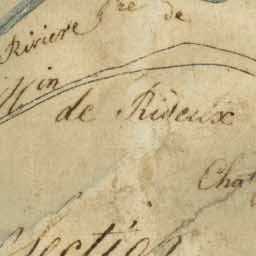 Riviere
de
Min
de Rideux
Chat
Section